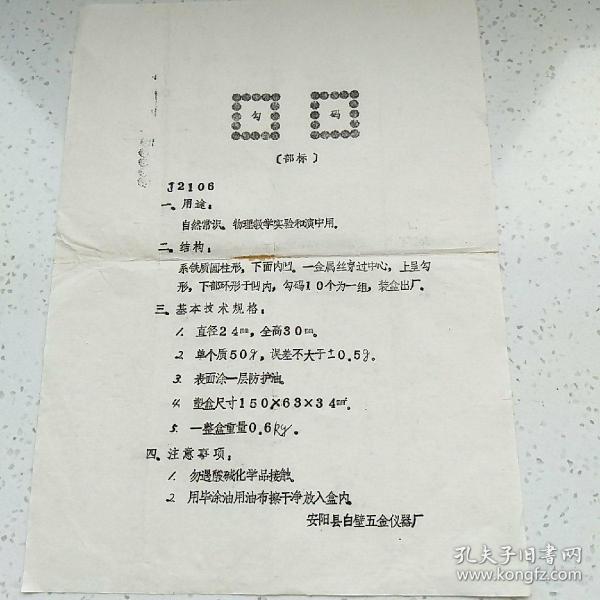 勾 码
〔部标〕
J2106
一、用途：
自然常识、物理教学实验和演中用。
二、结构：
系铁质圆柱形，下面内凹。一金属丝穿过中心，上呈勾
形，下部环形于凹内，勾码10个为一组，装盒出厂。
三、基本技术规格：
1. 直径24mm，全高30mm。
2. 单个质50g，误差不大于±0.5g。
3. 表面涂一层防护油。
4. 塑盒尺寸150×63×34mm³。
5. 一整盒重量0.6kg。
四、注意事项：
1. 勿遇酸碱化学品接触。
2. 用毕涂油用油布擦干净放入盒内。
安阳县白壁五金仪器厂
孔夫子旧书网
www.kongfz.com